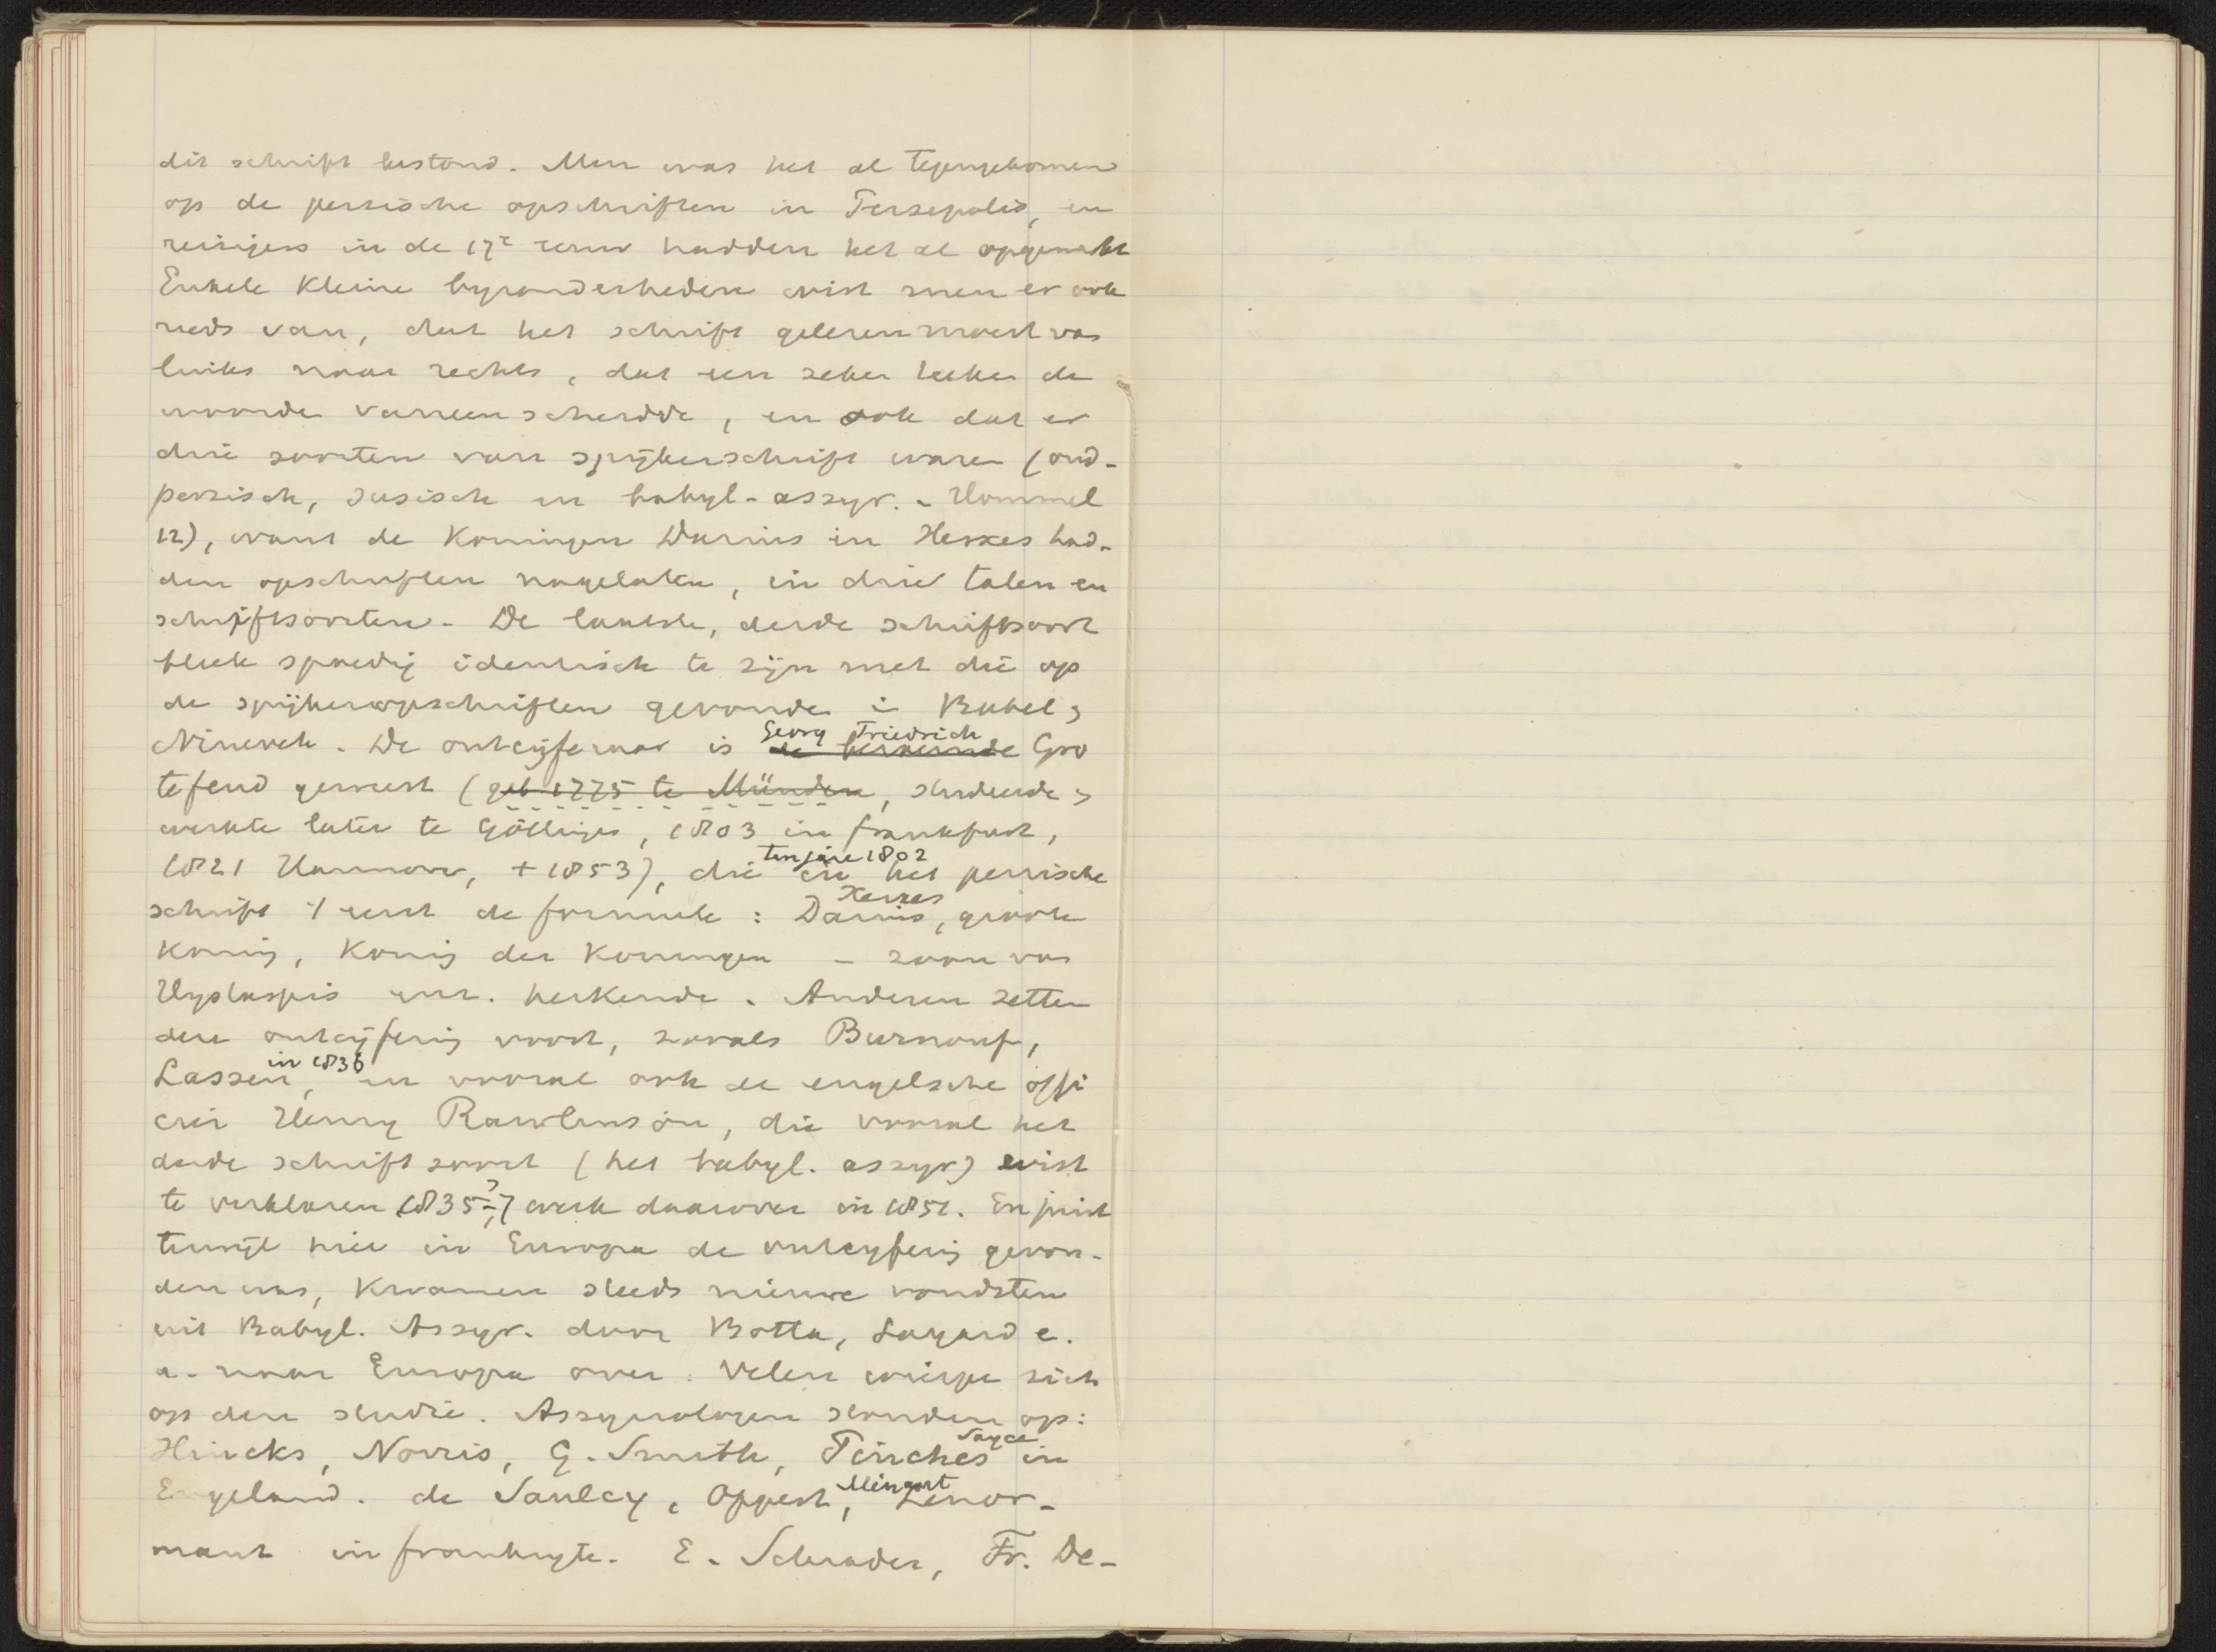 dit schrift bestond. Men was het al tegengekomen
op de persische opschriften in Persepolis, en
reizigers in de 17e eeuw hadden het al opgemerkt
Enkele kleine byzonderheden wist men er ook
reeds van, dat het schrift gelezen moest van
links naar rechts, dat een zeker teeken de
woorden vaneen scheidde, en ook dat er
drie soorten van spijkerschrift waren (oud-
persisch, susisch en babyl-assyr. - Hommel
12), want de Koningen Darius en Xerxes had-
den opschriften nagelaten, in drie talen en
schriftsoorten - De laatste, derde schriftsoort
bleek spoedig identisch te zijn met die op
de spijkeropschriften gevonden in Babel &
Nineveh. De ontcijferaar is de beroemde Georg Friedrich Gro
tefend geweest (geb 1775 te Münden, studeerde &
werkte later te Göttingen, 1803 in Frankfurt,
1821 Hannover, + 1853), die ten jare 1802 in het persische
schrift 't eerst de formule: Darius, Xerxes, groote
Koning, Koning der Koningen - zoon van
Hystaspis enz. herkende. Anderen zetten
deze ontcijfering voort, zooals Burnouf,
Lassen in 1836, en vooral ook de engelsche offi
cier Henry Rawlinson, die vooral het
derde schriftsoort (het babyl. assyr) wist
te verklaren 1835-? werk daarover in 1851. En juist
terwijl hier in Europa de ontcyfering gevon-
den was, kwamen steeds nieuwe vondsten
uit Babyl. Assyr. door Botta, Layard e.
a. naar Europa over. Velen wierpen zich
op deze studie. Assyriologen stonden op:
Hincks, Norris, G. Smith, Pinches Sayce in
Engeland. de Saulcy, Oppert, Menant, Lenor-
mant in Frankryk. E. Schrader, Fr. De-